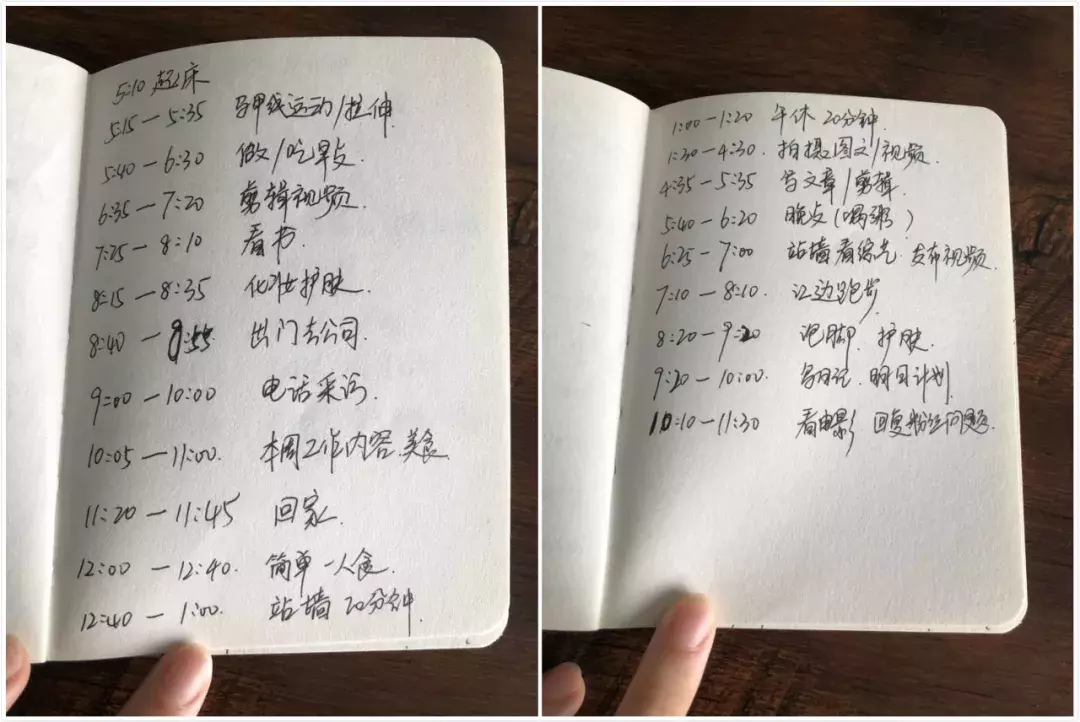 5:10 起床
5:15 — 5:35 马甲线运动/拉伸
5:40 — 6:30 做/吃早点.
6:35 — 7:20 剪辑视频.
7:25 — 8:10 看书.
8:15 — 8:35 化妆护肤.
8:40 — 8:55 出门去公司.
9:00 — 10:00 电话采访.
10:05 — 11:00. 本周工作内容.美食
11:20 — 11:45 回家.
12:00 — 12:40. 简单一人食.
12:40 — 1:00. 站墙 20分钟.
1:00 — 1:20 午休 20分钟.
1:30 — 4:30. 拍摄图文/视频.
4:35 — 5:35 写文章/剪辑.
5:40 — 6:20 晚点(喝粥)
6:25 — 7:00 站墙看综艺. 发布视频.
7:10 — 8:10. 江边跑步.
8:20 — 9:20 泡脚. 护肤.
9:20 — 10:00. 写日记. 明日计划
10:10 — 11:30 看电影. 回复粉丝问题.